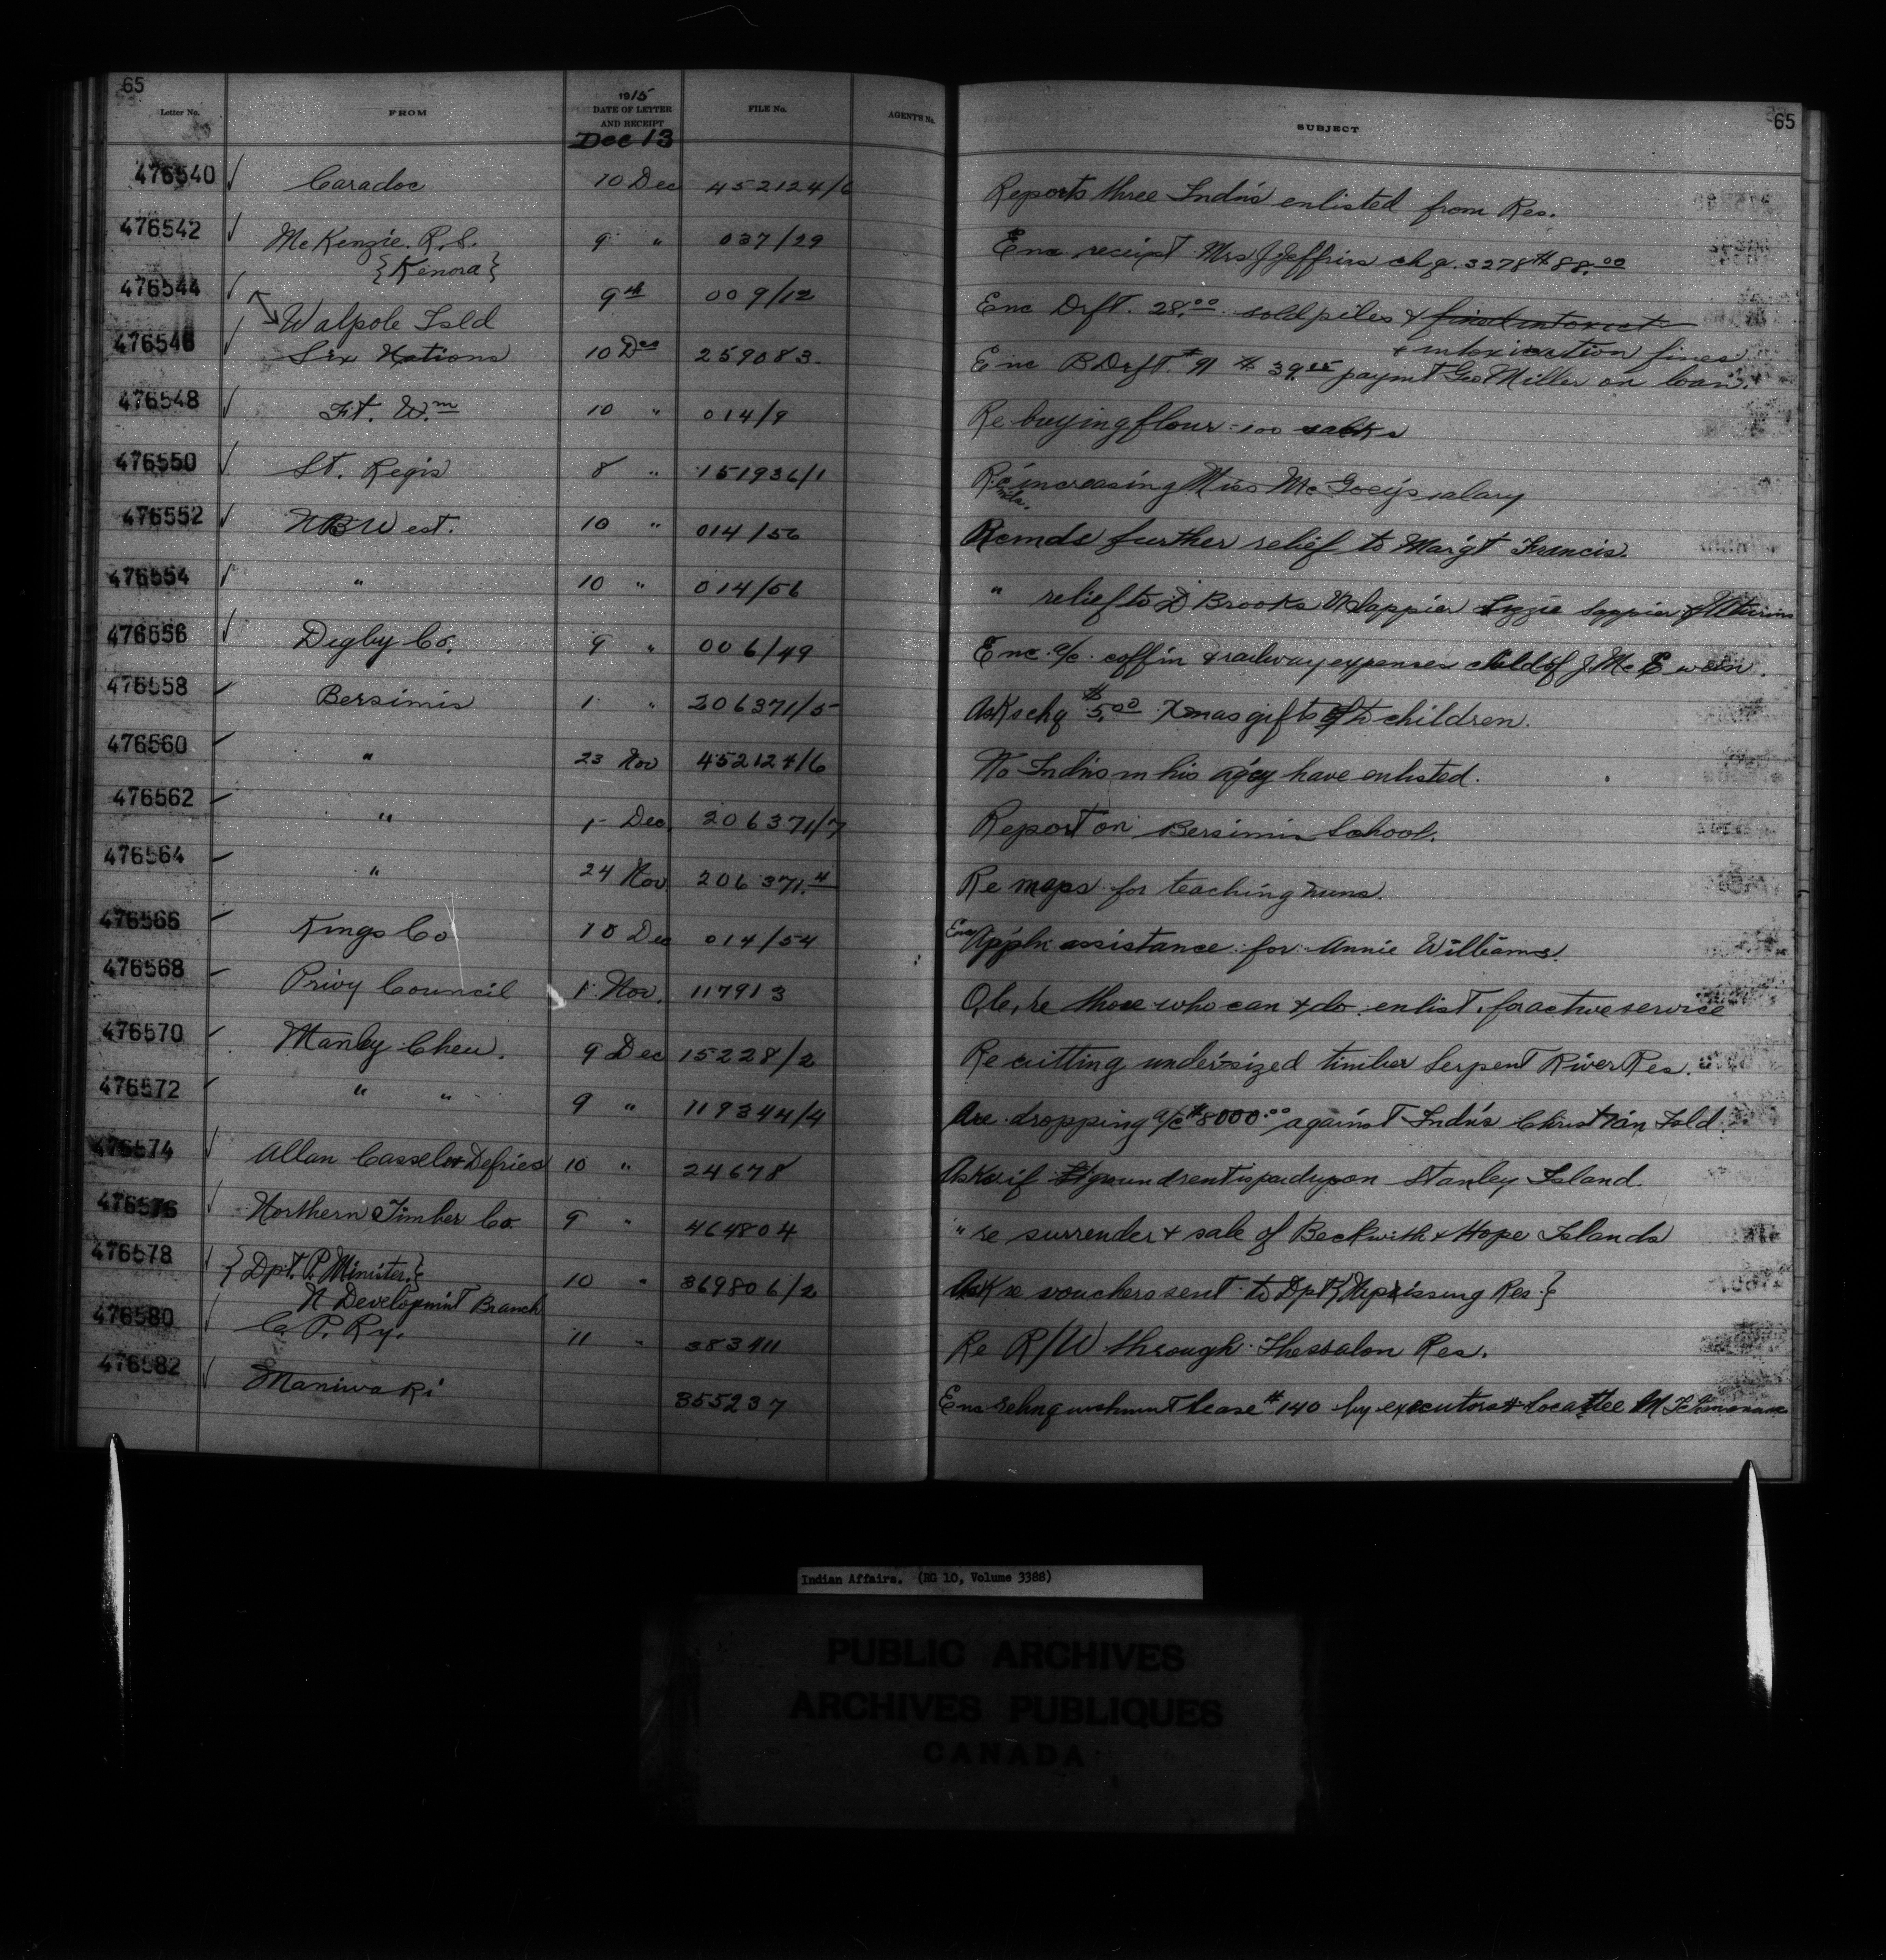 65 65
Letter No. FROM 1915 DATE OF LETTER AND RECEIPT FILE No. AGENT'S No. SUBJECT
Dec 13
476540 Caradoc 10 Dec 452124/6 Reports three Indns enlisted from Res.
476542 McKenzie. R.S. 9 " 037/29 Enc receipt Mrs J Jeffries chq. 3278 $88.00
{Kenora}
476544 Walpole Isld 9th 009/12 Enc Drft. 28.00 sold piles & fined intoxict
& intoxication fines
476546 Six Nations 10 Dec 259083. Enc B Drft. #91 $39. paymt Geo Miller on loan.
476548 Ft. Wm 10 " 014/9 Re buying flour - 100 sacks
476550 St. Regis 8 " 151936/1 Re increasing Miss McGoey's salary
476552 N B West. 10 " 014/56 Rcmds further relief to Marg't Francis.
476554 " 10 " 014/56 " relief to D Brooks M Sappier Lizzie Sappier &
476556 Digby Co. 9 " 006/49 Enc a/c coffin & railway expenses child of J. McEwan.
476558 Bersimis 1 " 206371/5 Asks chq $5.00 Xmas gifts to children.
476560 " 23 Nov 452124/6 No Indns in his agcy have enlisted.
476562 " 1 Dec 206371/7 Report on Bersimis School.
476564 " 24 Nov 206371.4 Re maps for teaching nuns.
476566 Kings Co 10 Dec 014/54 Enc Appln assistance for Annie Williams.
476568 Privy Council 1 Nov. 117913 O.C. re those who can & do enlist for active service
476570 Manley Chew. 9 Dec 15228/2 Re cutting undersized timber Serpent River Res.
476572 " " 9 " 119344/4 Are dropping a/c $8000.00 against Indns Christian Isld.
476574 Allan Cassels & Defries 10 " 24678 Asks if ground rent is paid upon Stanley Island.
476576 Northern Timber Co. 9 " 464804 " re surrender & sale of Beckwith & Hope Islands
476578 {Dpt. P. Minister.} 10 " 369806/2 Ask re vouchers sent to Dpt {Nipissing Res.}
N Developmint Branch
476580 C. P. Ry. 11 " 383911 Re R/W through Thessalon Res.
476582 Maniwaki 355237 Enc relinquishment lease #140 by executors & locattee M
Indian Affairs. (RG 10, Volume 3388)
PUBLIC ARCHIVES
ARCHIVES PUBLIQUES
CANADA